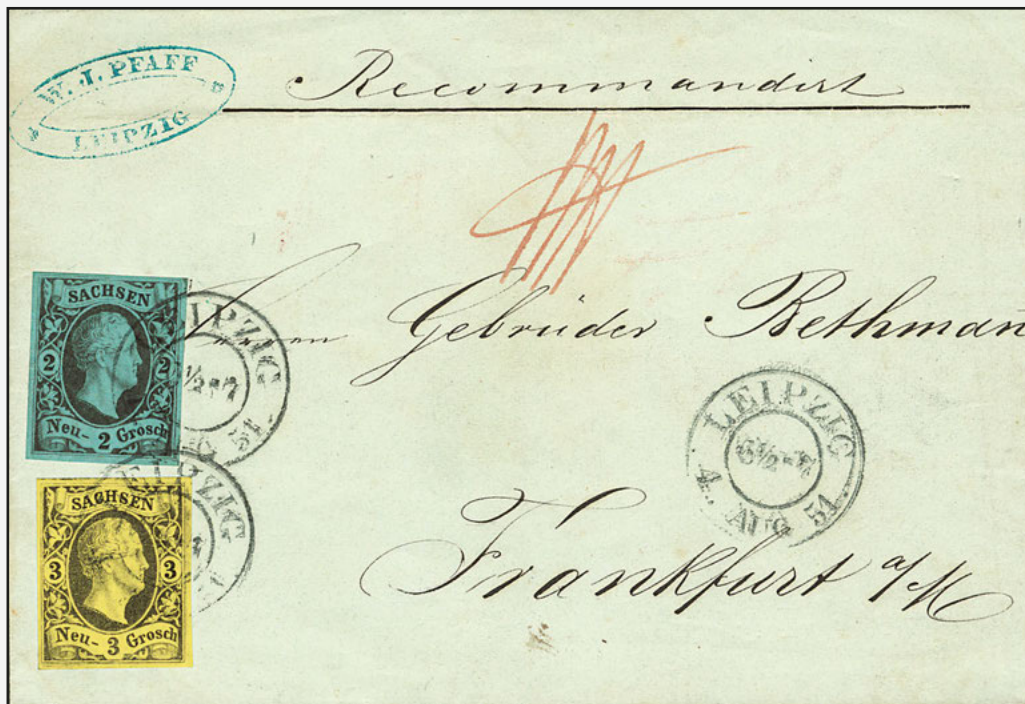 W. J. PFAFF
LEIPZIG
Recommandirt
Herren Gebrüder Bethman
SACHSEN
2 2
Neu- 2 Grosch
LEIPZIG
51
LEIPZIG
6½-7
4. AUG 51.
SACHSEN
3 3
Neu- 3 Grosch
LEIPZIG
Frankfurt a/M